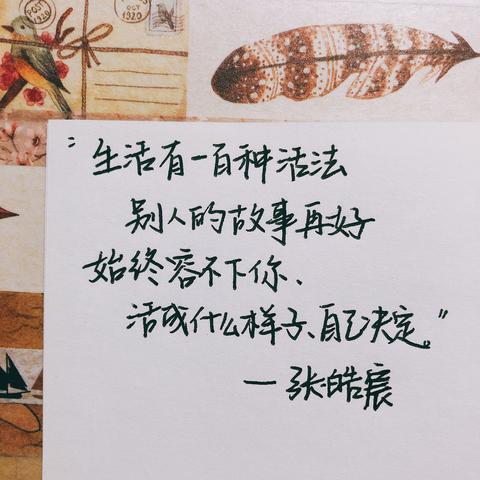 POST
1920
POST
OCT
1920
"生活有一百种活法
别人的故事再好
始终容不下你、
活成什么样子、自己决定。"
—张皓宸